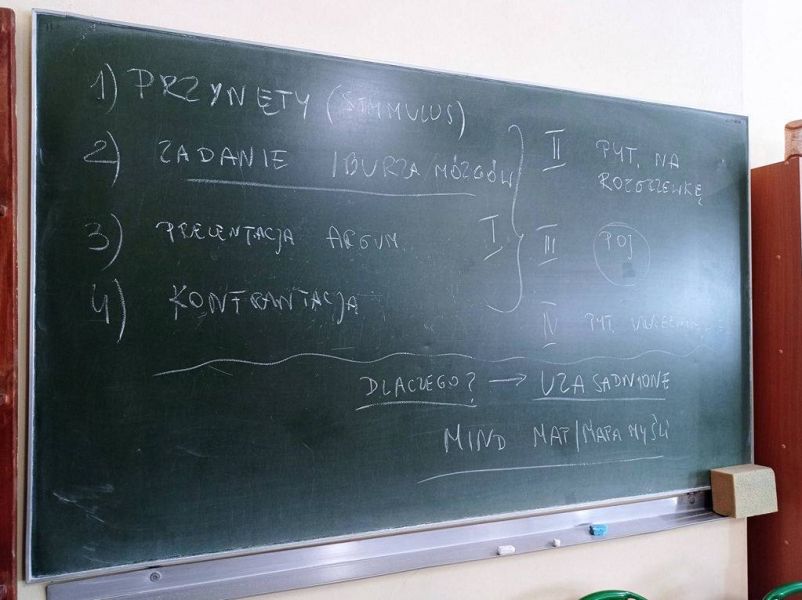 1) PRZYNĘTY (STIMMULUS)
2) ZADANIE / BURZA MÓZGÓW
3) PREZENTACJA ARGUM.
4) KONFRANTACJA
I
II PYT. NA
ROZGRZEWKĘ
III POJ
IV PYT.
DLACZEGO? → UZASADNIONE
MIND MAP/MAPA MYŚLI